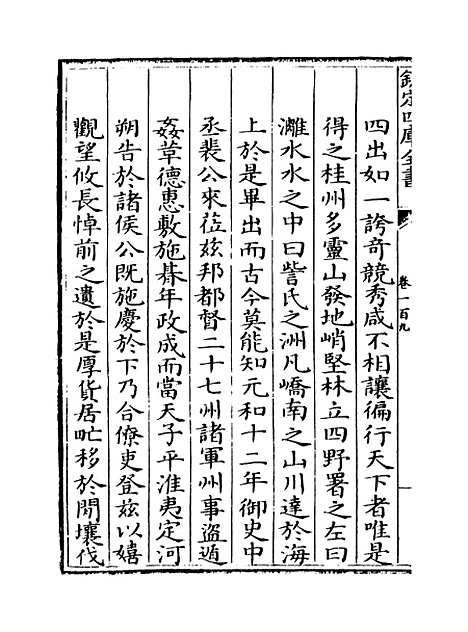 欽定四庫全書
卷一百九
四出如一誇奇競秀咸不相讓徧行天下者唯是
得之桂州多靈山發地峭堅林立四野署之左曰
灕水水之中曰訾氏之洲凡嶠南之山川達於海
上於是畢出而古今莫能知元和十二年御史中
丞裴公來莅兹邦都督二十七州諸軍州事盜遁
姦革德惠敷施朞年政成而當天子平淮夷定河
朔告於諸侯公既施慶於下乃合僚吏登兹以嬉
觀望攸長悼前之遺於是厚貨居甿移於閒壤伐